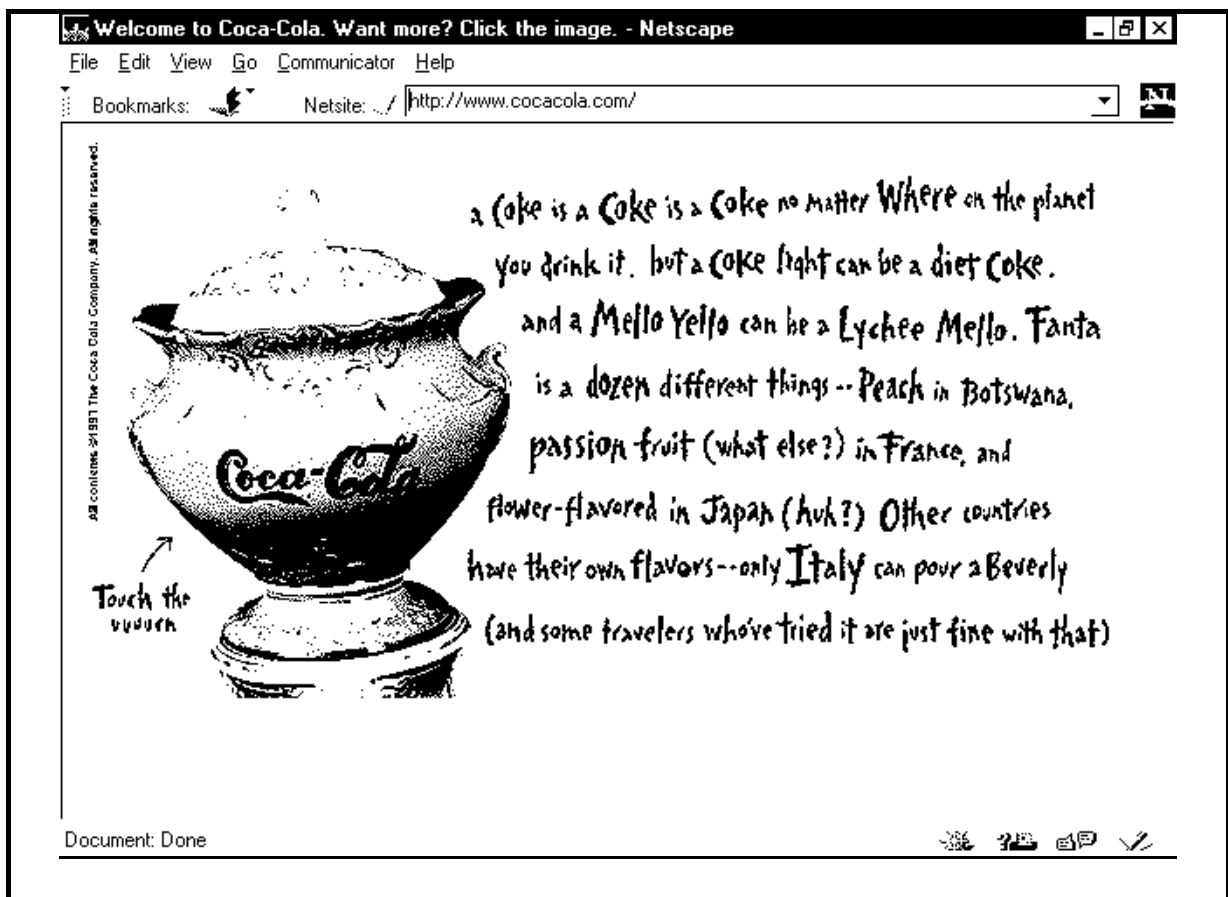 Welcome to Coca-Cola. Want more? Click the image. - Netscape
File Edit View Go Communicator Help
Bookmarks: Netsite: http://www.cocacola.com/
All contents ©1997 The Coca Cola Company. All rights reserved.
a Coke is a Coke is a Coke no matter Where on the planet
you drink it. but a Coke light can be a diet Coke.
and a Mello Yello can be a Lychee Mello. Fanta
is a dozen different things -- Peach in Botswana,
passion fruit (what else?) in France, and
flower-flavored in Japan (huh?) Other countries
have their own flavors--only Italy can pour a Beverly
(and some travelers who've tried it are just fine with that)
Coca-Cola
Touch the
vuuurn
Document: Done